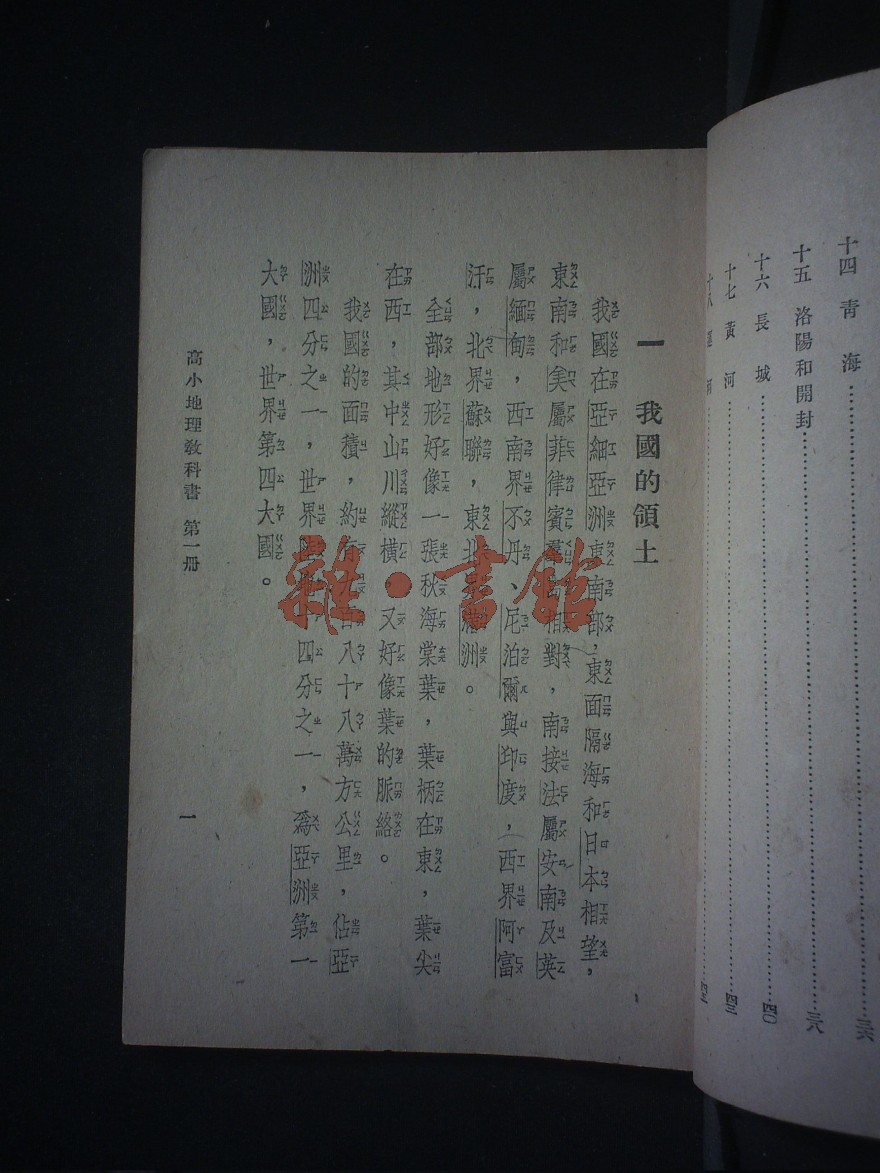 十四 青海……三六
十五 洛陽和開封……三八
十六 長城……四〇
十七 黃河……四三
十八
一 我國的領土
我國在亞細亞洲東南部，東面隔海和日本相望，
東南和美屬菲律賓羣相對，南接法屬安南及英
屬緬甸，西南界不丹、尼泊爾與印度，西界阿富
汗，北界蘇聯，東北洲。
全部地形好像一張秋海棠葉，葉柄在東，葉尖
在西，其中山川縱橫，又好像葉的脈絡。
我國的面積，約有八十八萬方公里，佔亞
洲四分之一，世界四分之一，爲亞洲第一
大國，世界第四大國。
高小地理教科書 第一冊
一
雜·書館